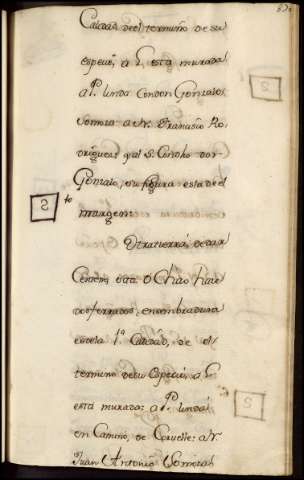 Calidad de el termino de su
especie, a L. esta murada
a P. linda con don Gonzalo
Somoza: a N. Franco Ro
driguez; y al S. con dho don
Gonzalo, su figura esta de el
margen
S
Otra tierra, de dar
Centeno, sita O Chao, hace
dos ferrados, en sembradura
es de la 1ª Calidad, de el
termino de su Especie, a L.
está murada: a P. linda
en Camino, de
a N.
Juan Antonio Somoza